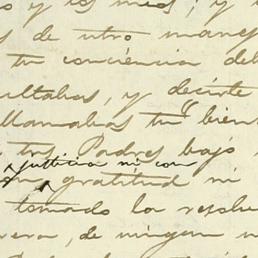 y los mios; y
s de utro manej
tu conciencia deb
ultabas, y decirte
llamabas tu "bien
tus Padres bajo
justicia ni con
gratitud ni
tomado la resolu
de ningun